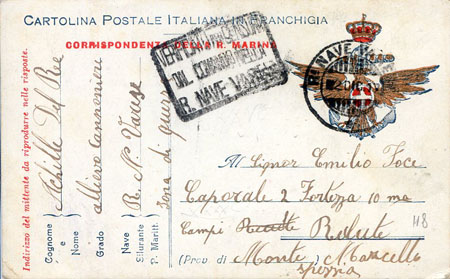 CARTOLINA POSTALE ITALIANA IN FRANCHIGIA
CORRISPONDENTE DELLA R. MARINA
VERIFICATO PER CENSURA
DAL COMANDO DELLA
R. NAVE VARESE
R. NAVE
Indirizzo del mittente da riprodurre nelle risposte.
Cognome e Nome
Achille Del Ree
Grado
allievo cannoniere
Nave Silurante P. Maritt.
R. N. Varese
Zona di guerra
Al Signor Emilio Foce
Caporale 2 Fortezza 10 ma
Campi Reclute
(Prov. di Monte Marcello
Spezia